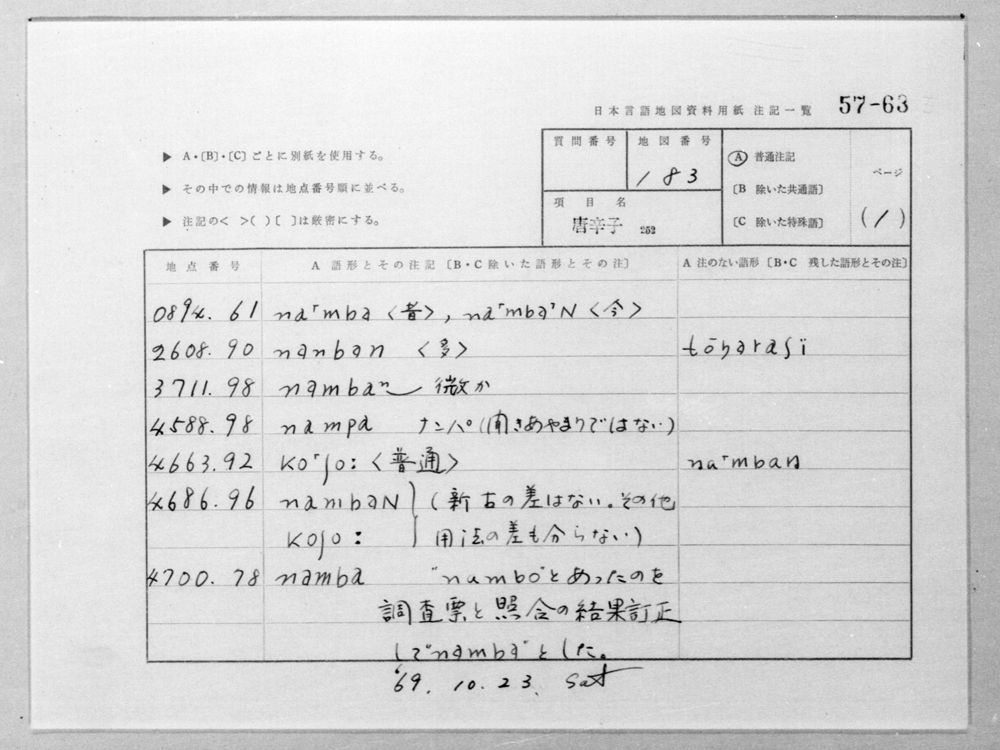 日本言語地図資料用紙 注記一覧 57-63
▶ A・〔B〕・〔C〕ごとに別紙を使用する。
▶ その中での情報は地点番号順に並べる。
▶ 注記の< >( )〔 〕は厳密にする。
質問番号
地図番号
183
項目名
唐辛子 252
Ⓐ 普通注記
〔B 除いた共通語〕
〔C 除いた特殊語〕
ページ
(1)
地点番号 A 語形とその注記〔B・C 除いた語形とその注〕 A 注のない語形〔B・C 残した語形とその注〕
0894. 61 na⸢mba〈昔〉, na⸢mba⸣N〈今〉
2608. 90 nanban 〈多〉 tōŋarasï
3711. 98 nambaⁿ 微か
4588. 98 nampa ナンパ(聞きあやまりではない)
4663. 92 ko⸢ʃo:〈普通〉 na⸢mban
4686. 96 nambaN (新古の差はない。その他
koʃo: 用法の差も分らない)
4700. 78 namba "nambo"とあったのを
調査票と照合の結果訂正
して"namba"とした。
'69. 10. 23. Sat